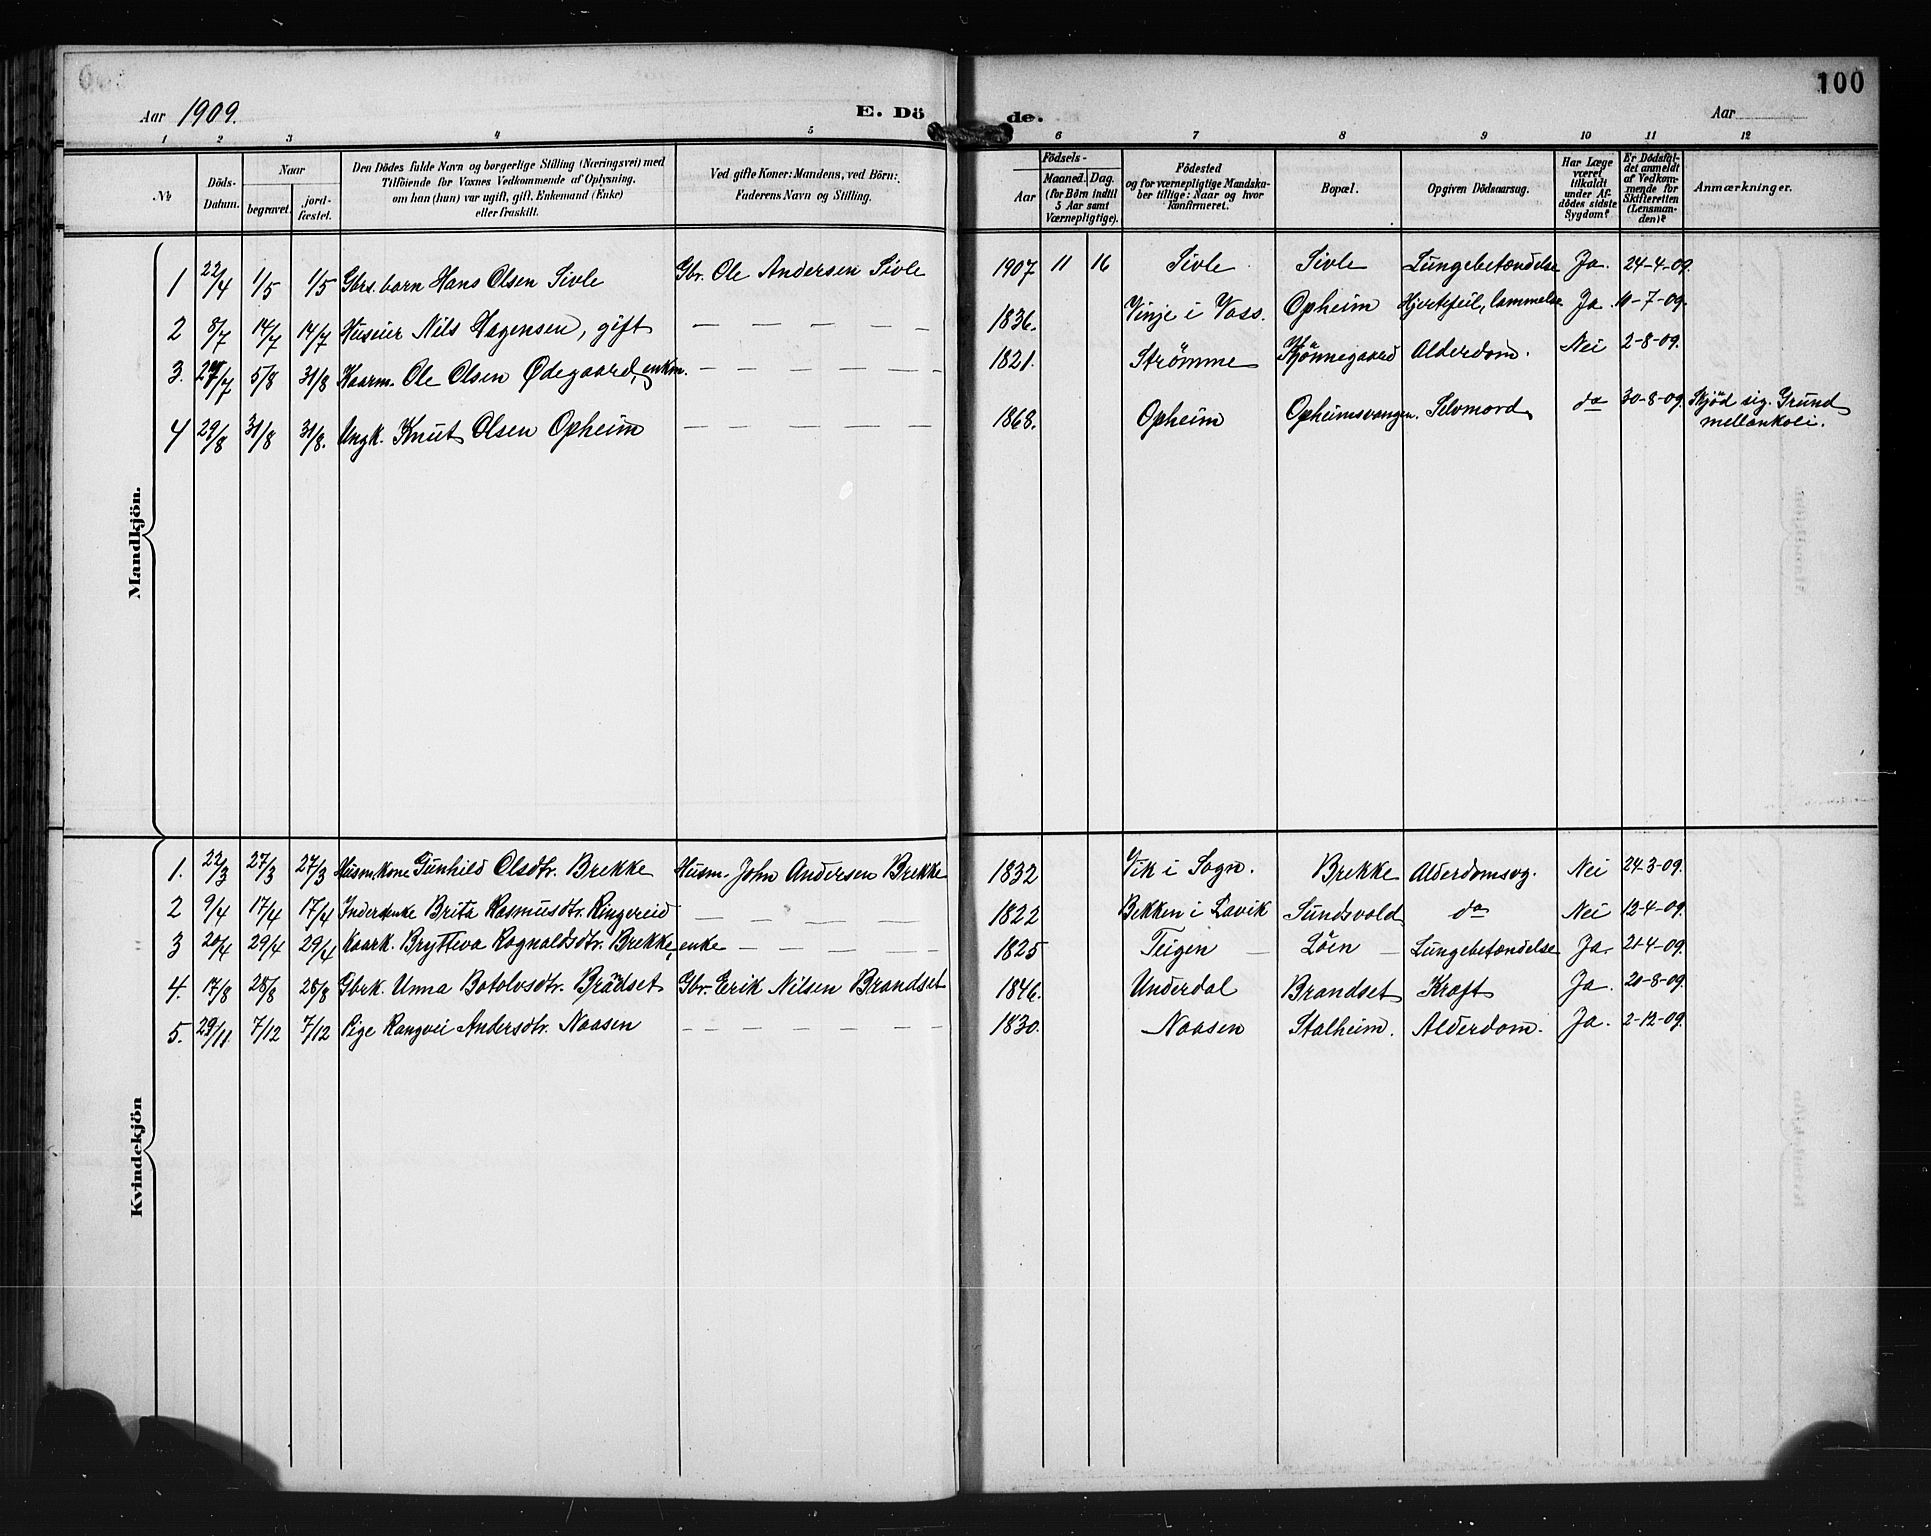 100
Aar 1909. E. Dö de. Aar
1 2 3 4 5 6 7 8 9 10 11 12
№
Döds-Datum.
Naar
begravet.
jord-fæstet.
Den Dödes fulde Navn og borgerlige Stilling (Næringsvei) med
Tilföiende for Voxnes Vedkommende af Oplysning.
om han (hun) var ugift, gift. Enkemand (Enke)
eller fraskilt.
Ved gifte Koner: Mandens, ved Börn:
Faderens Navn og Stilling.
Födsels-
Aar
Maaned. Dag.
(for Börn indtil
5 Aar samt
Værnepligtige).
Födested
og for værnepligtige Mandska-
ber tillige: Naar og hvor
konfirmeret.
Bopæl.
Opgiven Dödsaarsag.
Har Læge
været
tilkaldt
under Af-
dödes sidste
Sygdom?
Er Dödsfal-
det anmeldt
af Vedkom-
mende for
Skifteretten
(Lensman-
den)?
Anmærkninger.
Mandkjön.
1 22/4 1/5 1/5 Gbrs. barn Hans Olsen Sivle Gbr. Ole Andersen Sivle 1907 11 16 Sivle Sivle Lungebetændelse Ja. 24-4-09.
2 8/7 14/7 14/7 Huseier Nils Hagensen, gift — — — — — 1836. Vinje i Voss. Opheim Hjertefeil, lammelse Ja. 10-7-09.
3. 27/7 5/8 31/8 Kaarm. Ole Olsen Ødegaard, enkm. — — — — — 1821. Strømme Alderdom. Nei 2-8-09.
4 29/8 31/8 31/8. Ungk. Knut Olsen Opheim — — — — — 1868. Opheim Opheimsvangen. Selvmord do 30-8-09. Skjød sig. Grund
mellankoli.
Kvindekjön
1. 22/3 27/3 27/3 Husm.kone Gunhild Olsdtr. Brekke Husm. John Andersen Brekke 1832 Vik i Sogn. Brekke Alderdomsvg. Nei 24-3-09.
2 9/4 17/4 17/4 Inderstenke Brita Rasmusdtr. Ringereid — — — — — 1822 Bekken i Lavik Sundsvold do Nei 12-4-09.
3 20/4 29/4 29/4 Kaark. Brytteva Ragnaldsdtr. Brekke, enke — — — — 1825 Teigen — Løen — Lungebetændelse Ja. 21-4-09.
4. 17/8 28/8 28/8 Gbrk. Unna Botolvsdtr. Brädset Gbr. Erik Nilsen Brandset 1846. Underdal Brandset Kræft Ja. 20-8-09.
5. 29/11 7/12 7/12 Pige Rangvei Andersdtr. Naasen — — — — — 1830. Naasen Stalheim. Alderdom. Ja. 2-12-09.